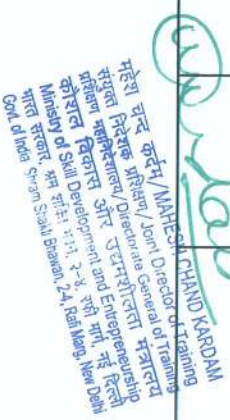 महेश चन्द कर्दम/MAHESH CHAND KARDAM
संयुक्त निदेशक प्रशिक्षण/Joint Director of Training
प्रशिक्षण महानिदेशालय/Directorate General of Training
कौशल विकास और उद्यमशीलता मंत्रालय
Ministry of Skill Development and Entrepreneurship
भारत सरकार, श्रम शक्ति भवन, २-४, रफी मार्ग, नई दिल्ली
Govt. of India Shram Shakti Bhawan, 2-4, Rafi Marg, New Delhi